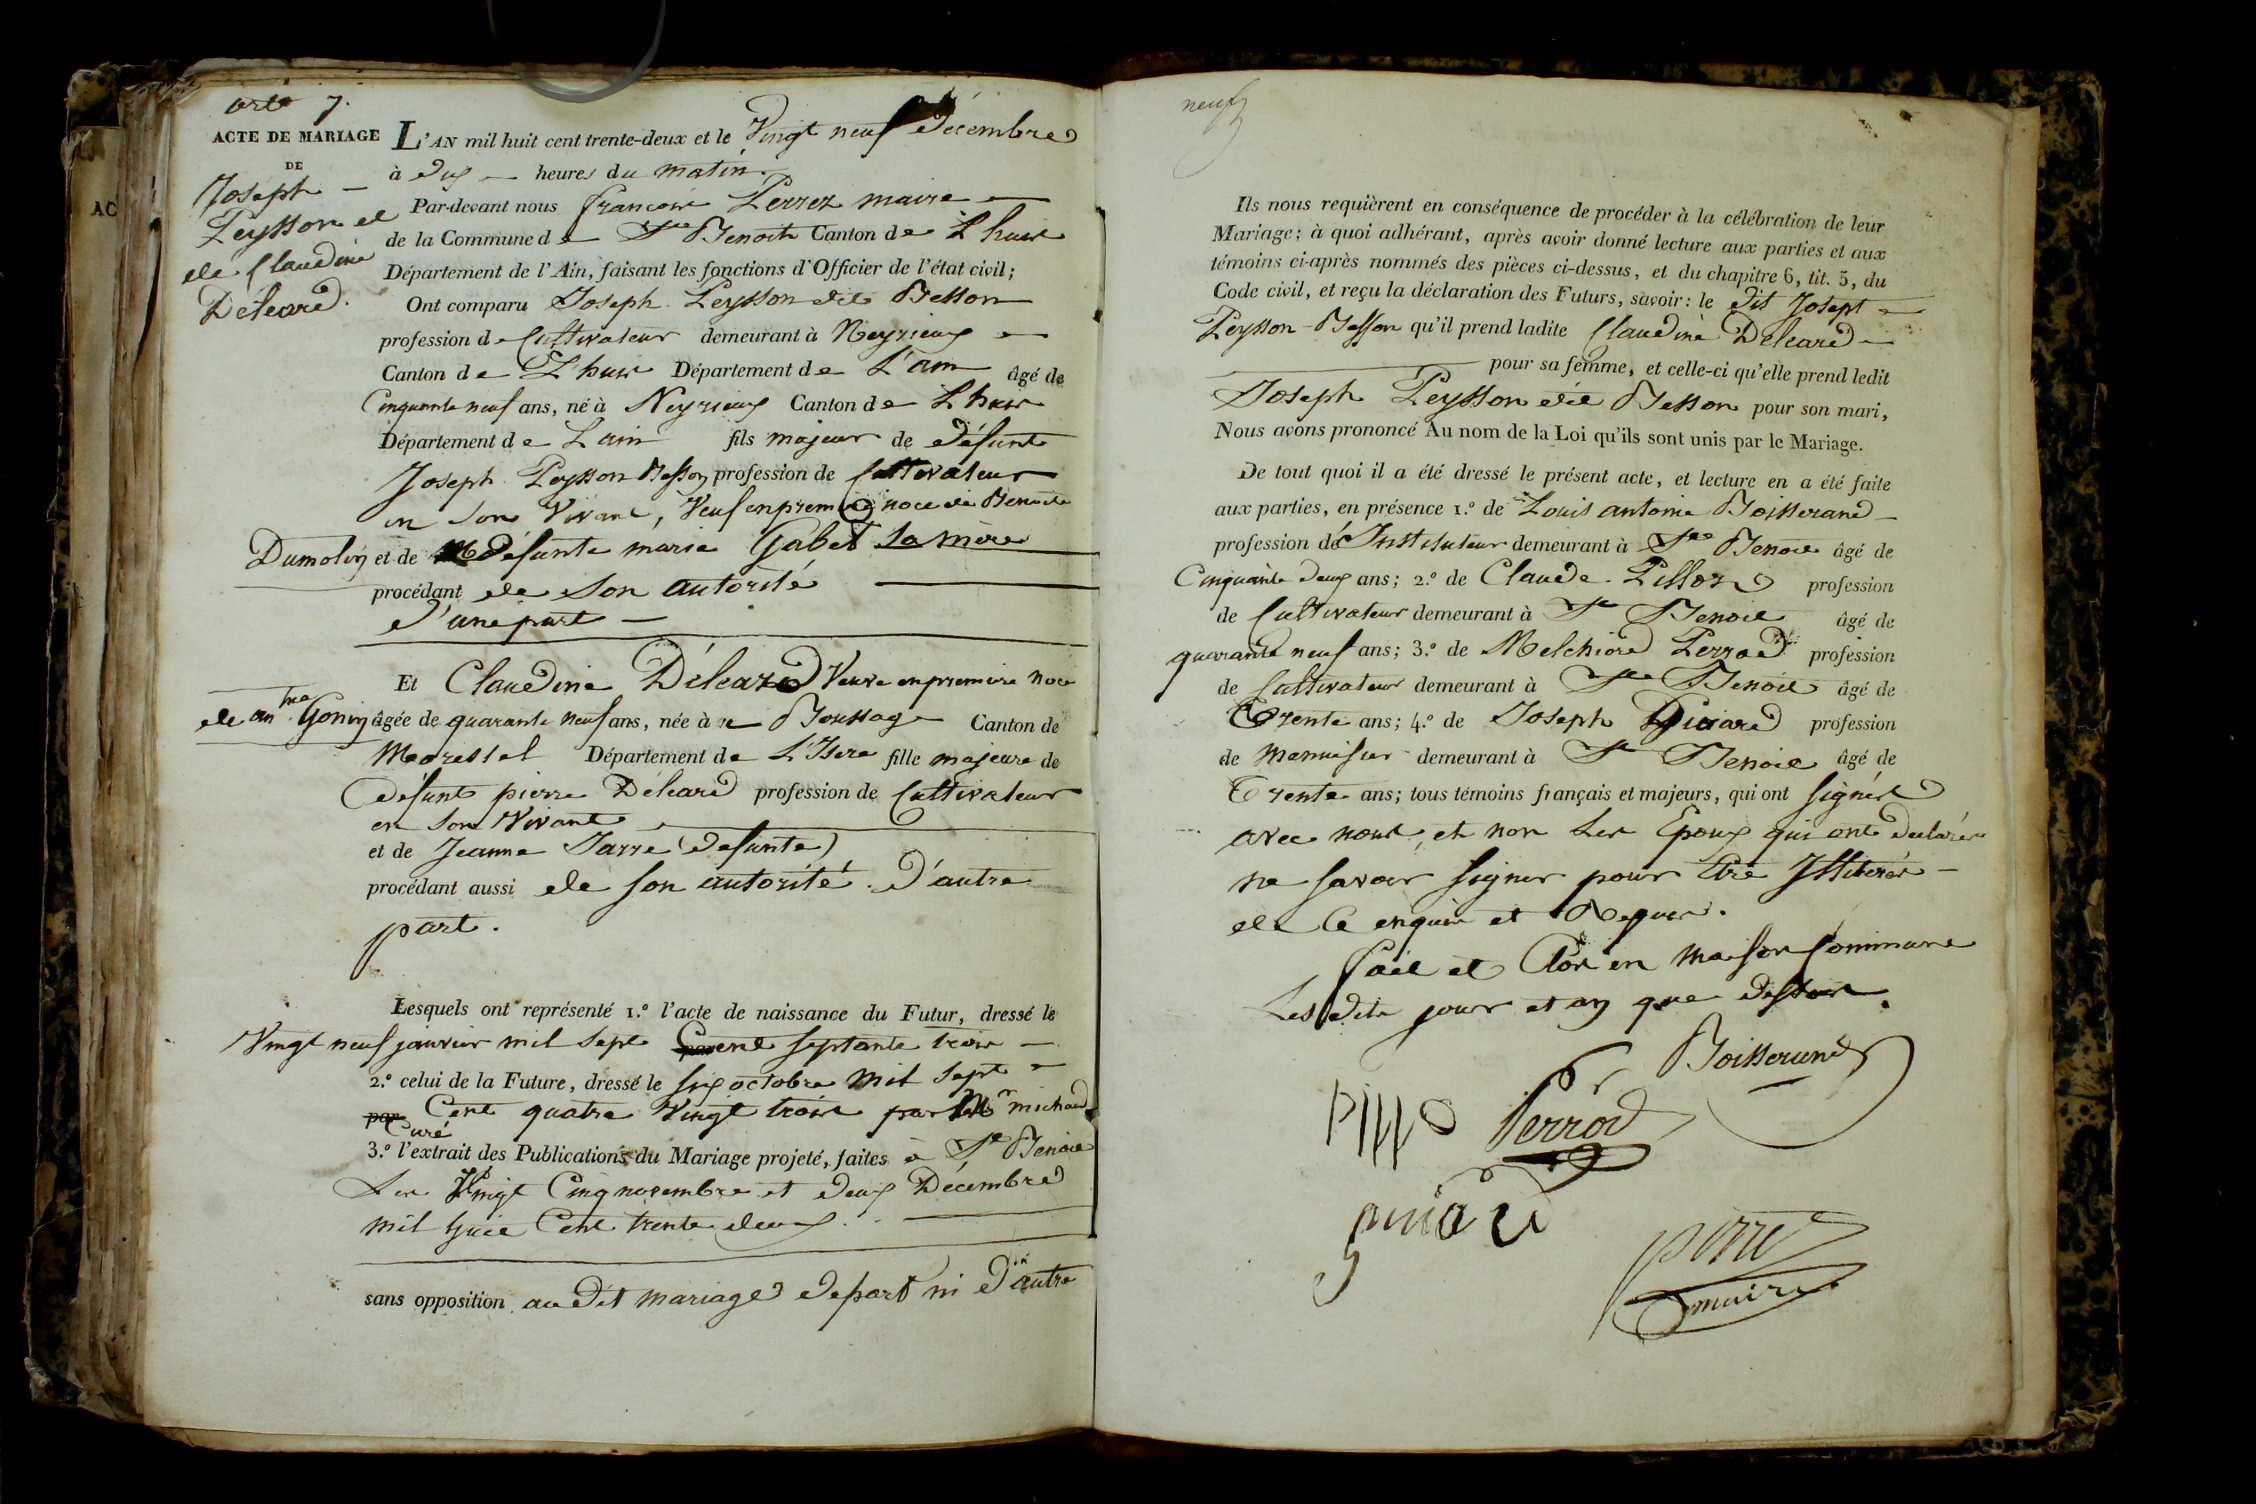 acte 7.
ACTE DE MARIAGE
DE
Joseph
Peysson et
de Claudine
Déléard.
L'AN mil huit cent trente-deux et le Vingt neuf Décembre
à dix heures du matin.
Par-devant nous françois Perrez maire
de la Commune de St Benoit Canton de Lhuis
Département de l'Ain, faisant les fonctions d'Officier de l'état civil;
Ont comparu Joseph Peysson dit Besson
profession de Cultivateur demeurant à Neyrieux
Canton de Lhuis Département de L'ain âgé de
Cinquante neuf ans, né à Neyrieux Canton de Lhuis
Département de Lain fils majeur de défunt
Joseph Peysson Besson profession de Cultivateur
en son Vivant, Veuf en premiere noce de Benoite
Dumolin et de défunte marie Gabet sa mère
procédant de son autorité
d'une part
Et Claudine Déléard Veuve en premiere noce
de antne Gonin âgée de quarante neuf ans, née à Boussage Canton de
Morestel Département de L'Isere fille majeure de
défunt pierre Déléard profession de Cultivateur
en son Vivant
et de Jeanne Jarre (défunte)
procédant aussi de son autorité. d'autre
part.
Lesquels ont représenté 1.º l'acte de naissance du Futur, dressé le
Vingt neuf janvier mil sept cent septante trois
2.º celui de la Future, dressé le six octobre mil sept
par Cent quatre Vingt trois par Mr michaud
Curé
3.º l'extrait des Publications du Mariage projeté, faites à St Benoit
Les Vingt Cinq novembre et deux Décembre
mil huit Cent trente deux.
sans opposition au dit mariage de part ni d'autre
neuf
Ils nous requièrent en conséquence de procéder à la célébration de leur
Mariage; à quoi adhérant, après avoir donné lecture aux parties et aux
témoins ci-après nommés des pièces ci-dessus, et du chapitre 6, tit. 5, du
Code civil, et reçu la déclaration des Futurs, savoir: le dit Josept
Peysson-Besson qu'il prend ladite Claudine Déléard
pour sa femme, et celle-ci qu'elle prend ledit
Joseph Peysson dit Besson pour son mari,
Nous avons prononcé Au nom de la Loi qu'ils sont unis par le Mariage.
De tout quoi il a été dressé le présent acte, et lecture en a été faite
aux parties, en présence 1.º de Louis antoine Boisserand
profession d'Instituteur demeurant à St Benoit âgé de
Cinquante deux ans; 2.º de Claude Pilloz profession
de Cultivateur demeurant à St Benoit âgé de
quarante neuf ans; 3.º de Melchiord Perrod profession
de Cultivateur demeurant à St Benoit âgé de
Trente ans; 4.º de Joseph Guiard profession
de Menuisier demeurant à St Benoit âgé de
Trente ans; tous témoins français et majeurs, qui ont signés
avec nous, et non Les Epoux qui ont déclarés
ne savoir signer pour Etre Illiterés
de Ce enquis et Requis.
fait et Clos en maison Commune
Les dits jour et an que dessus.
Boisserand
Pillo Perrod
guiard
perrez
maire